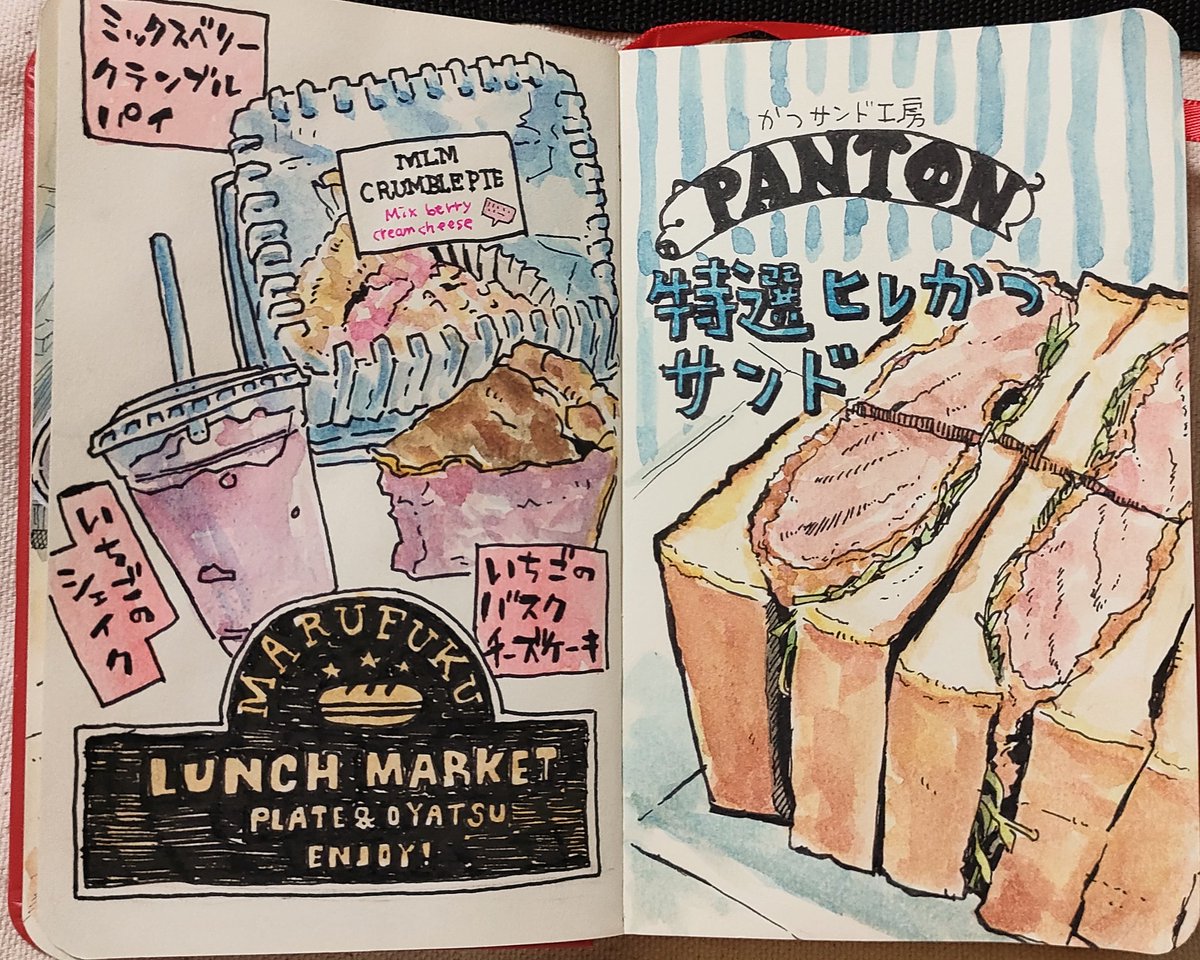 ミックスベリー
クランブル
パイ
MLM
CRUMBLE PIE
Mix berry
creamcheese
いちごの
シェイク
いちごの
バスク
チーズケーキ
MARUFUKU
LUNCH MARKET
PLATE & OYATSU
ENJOY!
かつサンド工房
PANTON
特選 ヒレかつ
サンド